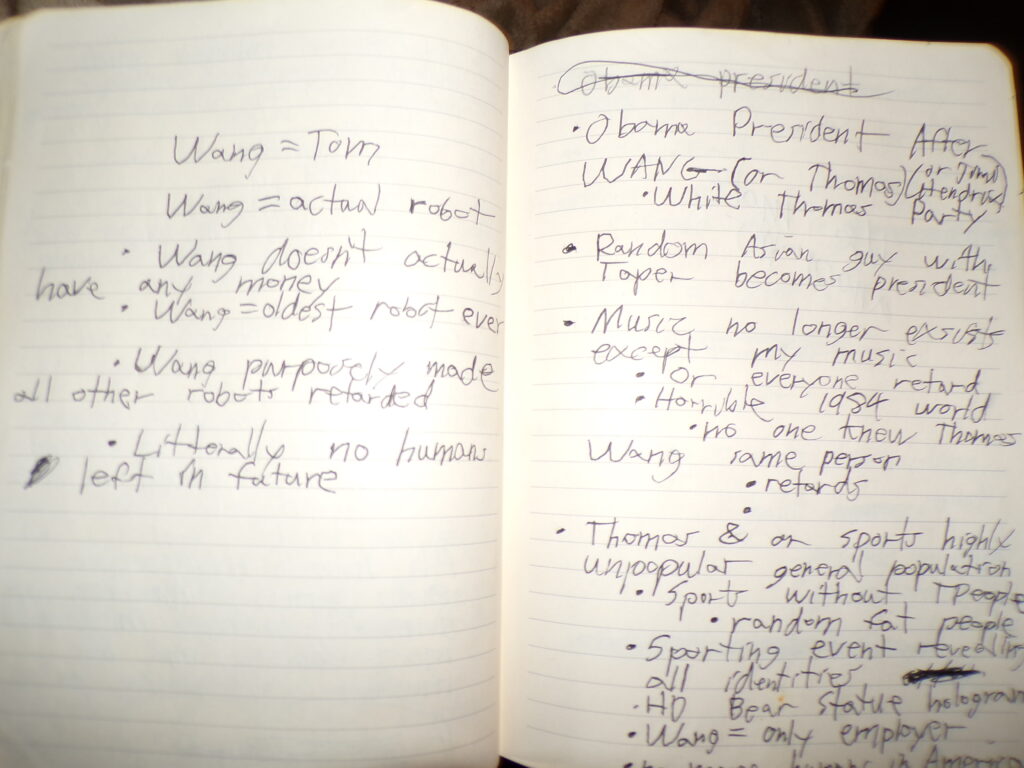 Wang = Tom
Wang = actual robot
• Wang doesn't actually
have any money
• Wang = oldest robot ever
• Wang purposely made
all other robots retarded
• Litterally no humans
left in future
Obama president
• Obama President After
WANG (or Thomas) (or Jimi Hendrix)
• White Thomas Party
• Random Asian guy with
Taper becomes president
• Music no longer exsists
except my music
• Or everyone retard
• Horrible 1984 world
• no one knew Thomas
Wang same person
• retards
•
• Thomas & or sports highly
unpopular general population
• Sports without TPeople
• random fat people
• Sporting event revealing
all identities
• HD Bear statue hologram
• Wang = only employer
humans in America